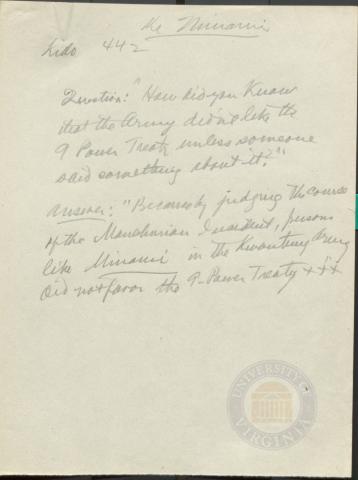 re Minami
Kido 442
Question: "How did you know
that the Army didn't like the
9 Power Treaty unless someone
said something about it?"
Answer: "Because by judging the course
of the Manchurian Incident, persons
like Minami in the Kwantung Army
did not favor the 9-Power Treaty +++
UNIVERSITY
of
VIRGINIA